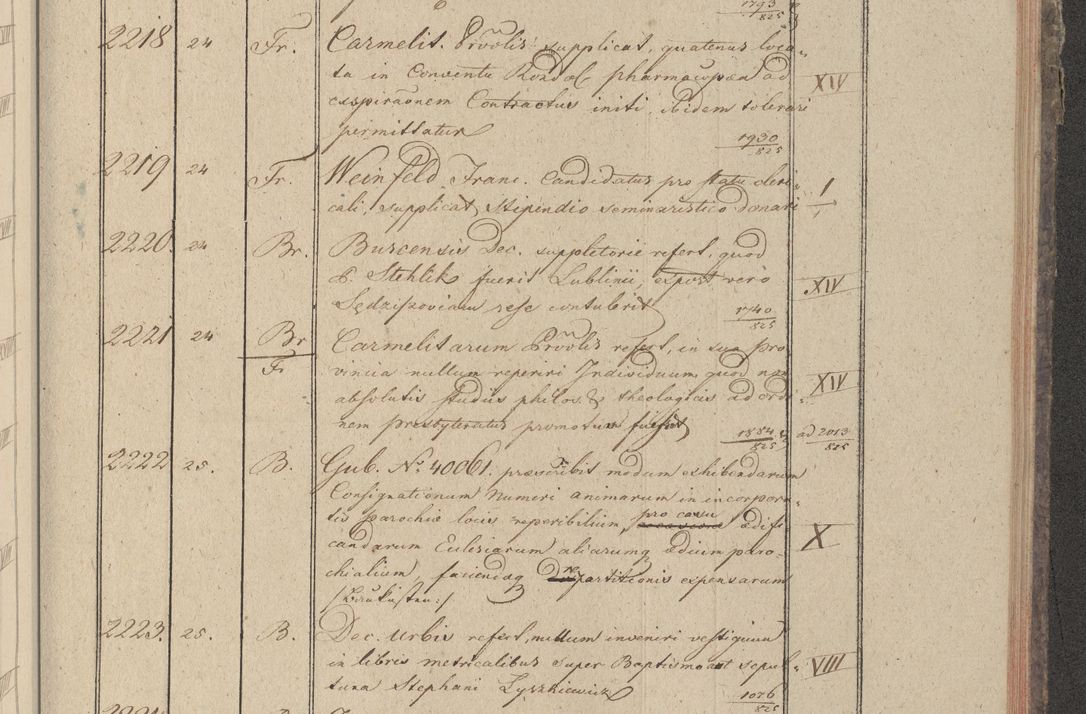 1793/825
2218 24 Fr. Carmelit. Prõvõlis supplicat, quatenus loca-
ta in Conventu pharmacopæa ad XIV
exspiraõnem Contractus initi ibidem tolerari
permittatur 1930/825
2219 24 Fr. Weinfeld Franc. Candidatus pro statu cleri- I
cali, supplicat, stipendio seminaristico donari
2220. 24 Br. Burcensis Dec. suppletorie refert, quod
P. Stehlik fuerit Lublinii, expost vero XIV
Sędziszoviam sese contulerit 1740/825
2221 24 Br/Fr Carmelitarum Prõvõlis refert, in sua pro-
vincia nullum reperiri Individuum, quod non XIV
absolutis studiis philos. & theologicis ad ordi-
nem presbyteratus promotum 1884/825 ad 2013/825
2222 25. B. Gub. No. 40061. præscribit modum exhibendarum
Consignationum Numeri animarum in incorpora-
tis parochiæ locis reperibilium, pro casu ædifi-
candarum Ecclesiarum aliarumq ædium paro- X
chialium, faciendaq repartitionis expensarum
/:Baukösten:/
2223. 25. B. Dec. Urbis refert, nullum inveniri vestigium
in libris metricalibus super Baptismo aut sepul- VIII
tura Stephani Lyszkiewicz 1076/825